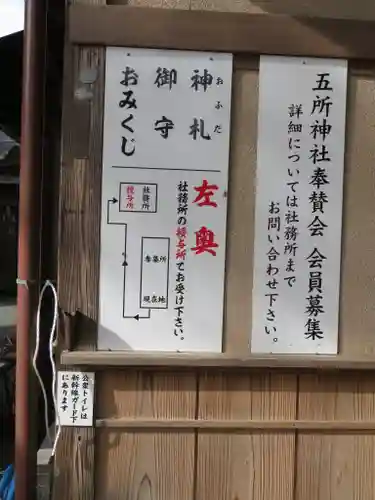 五所神社奉賛会 会員募集
詳細については社務所まで
お問い合わせ下さい。
神札
おふだ
御守
おみくじ
左奥
社務所の授与所でお受け下さい。
社務所
授与所
参集所
現在地
公衆トイレは
新幹線ガード下
にあります